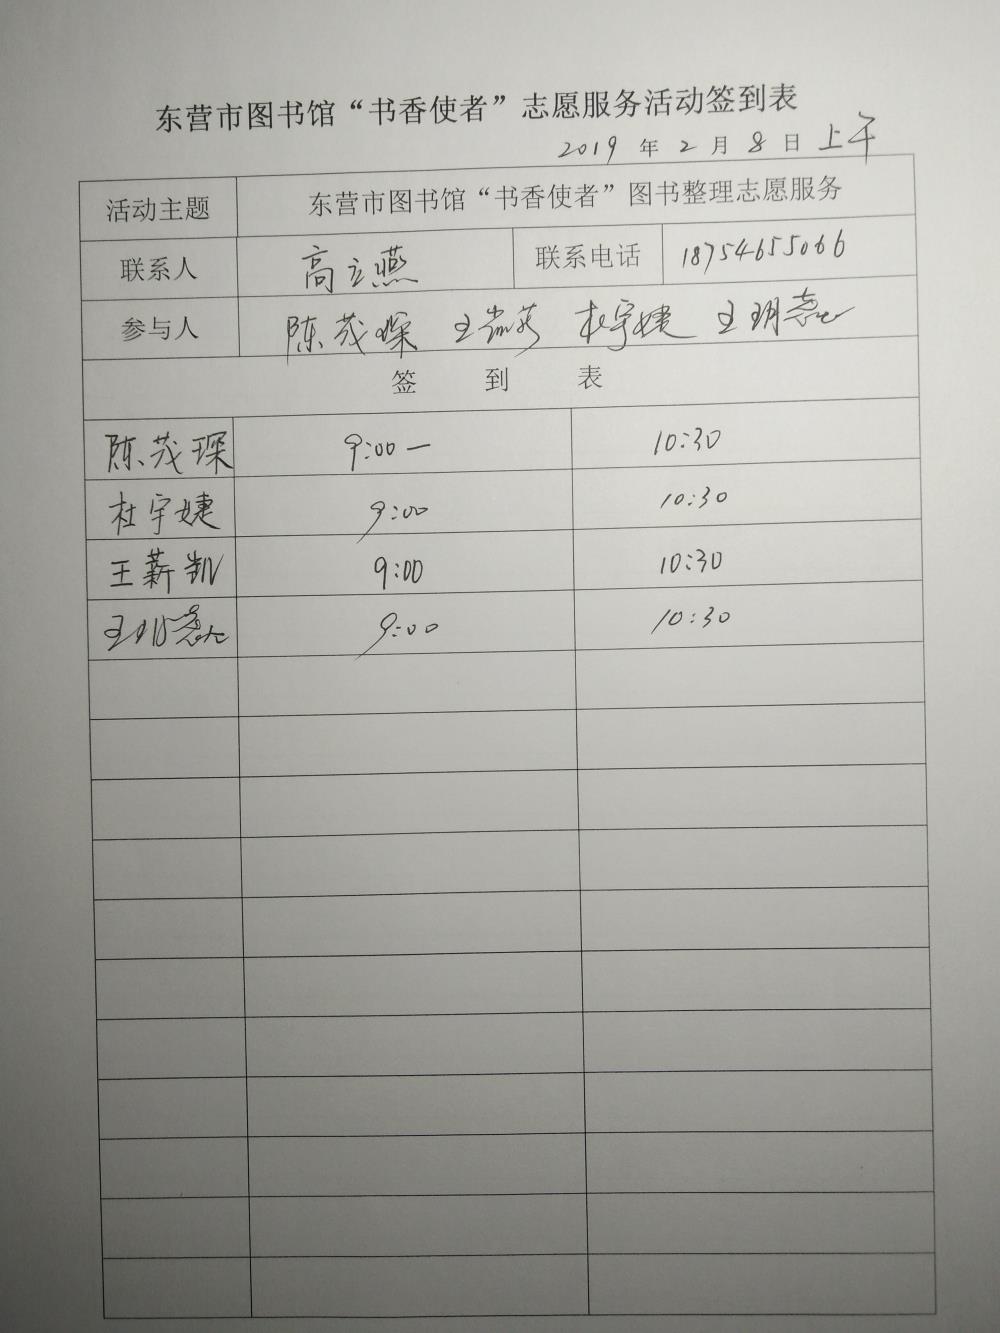 东营市图书馆“书香使者”志愿服务活动签到表
2019 年 2 月 8 日 上午
活动主题 东营市图书馆“书香使者”图书整理志愿服务
联系人 高立燕 联系电话 18754655066
参与人 陈茂琛 王 杜宇婕 王玥
签 到 表
陈茂琛 9:00— 10:30
杜宇婕 9:00 10:30
王薪凯 9:00 10:30
王玥 9:00 10:30